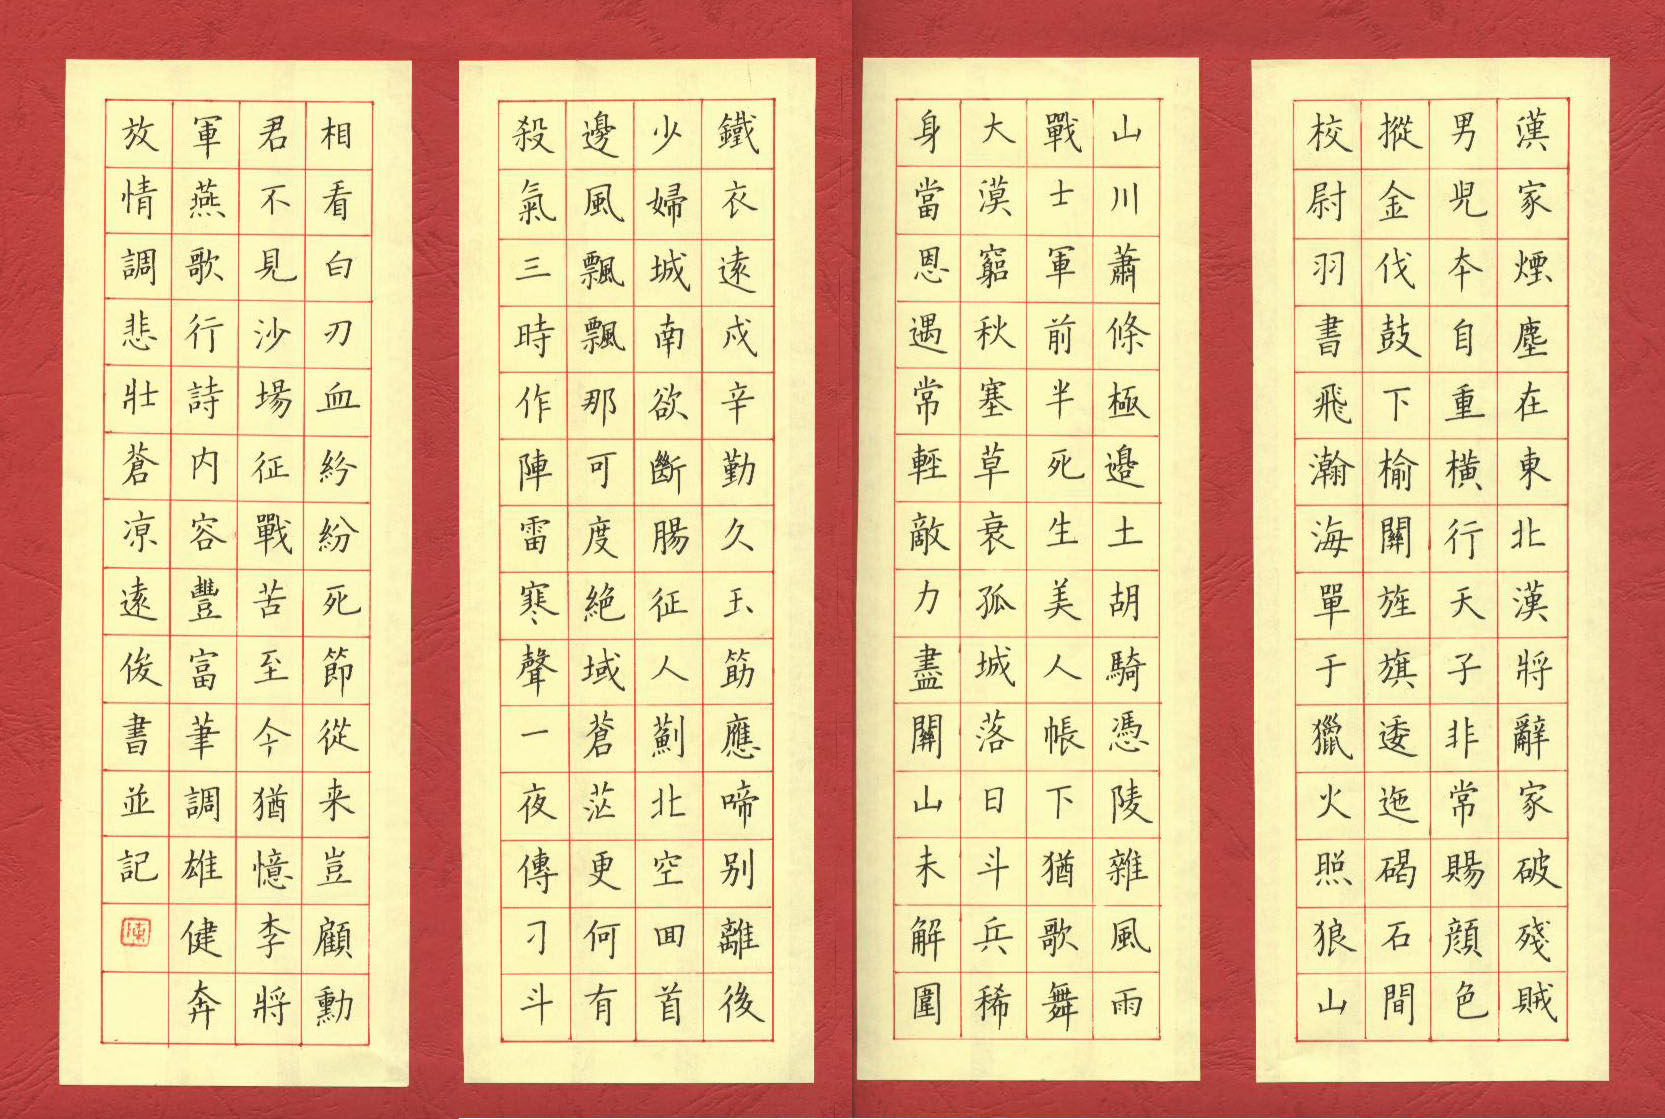 漢家煙塵在東北漢將辭家破殘賊
男兒夲自重橫行天子非常賜顔色
摐金伐鼓下榆關旌旗逶迤碣石間
校尉羽書飛瀚海單于獵火照狼山
山川蕭條極邊土胡騎憑陵雜風雨
戰士軍前半死生美人帳下猶歌舞
大漠窮秋塞草衰孤城落日斗兵稀
身當恩遇常輕敵力盡關山未解圍
鐵衣遠戍辛勤久玉筯應啼别離後
少婦城南欲斷腸征人薊北空回首
邊風飄飄那可度絕域蒼茫更何有
殺氣三時作陣雷寒聲一夜傳刁斗
相看白刃血紛紛死節從来豈顧勳
君不見沙場征戰苦至今猶憶李將
軍燕歌行詩内容豐富筆調雄健奔
放情調悲壯蒼凉遠俊書並記
陳